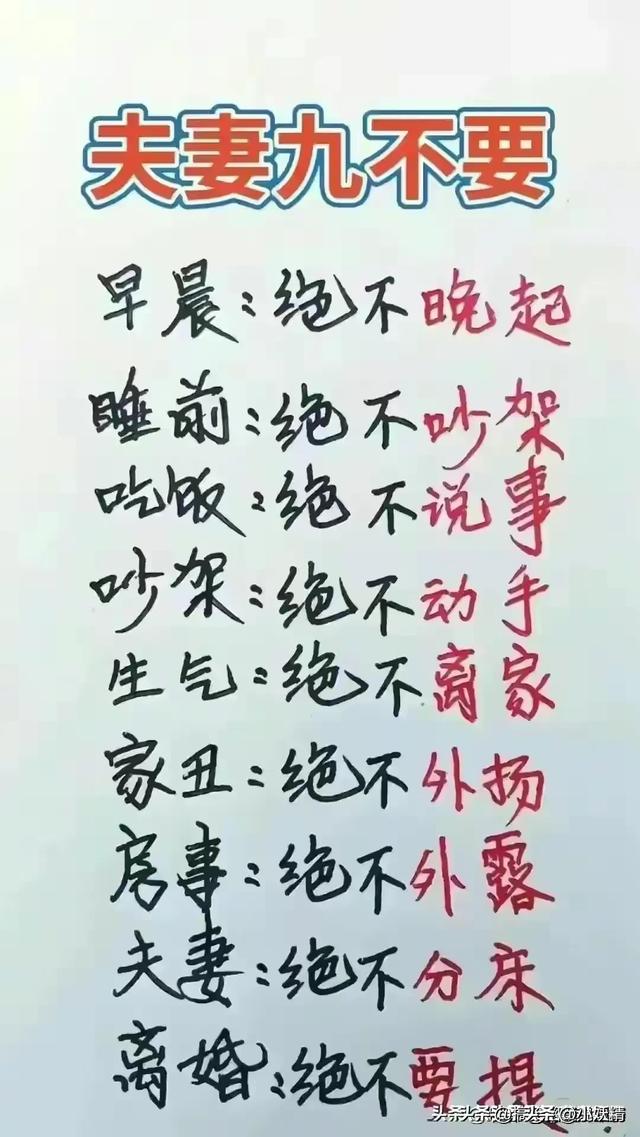 夫妻九不要
早晨:绝不晚起
睡前:绝不吵架
吃饭:绝不说事
吵架:绝不动手
生气:绝不离家
家丑:绝不外扬
房事:绝不外露
夫妻:绝不分床
离婚:绝不要提
头条 @小妖精